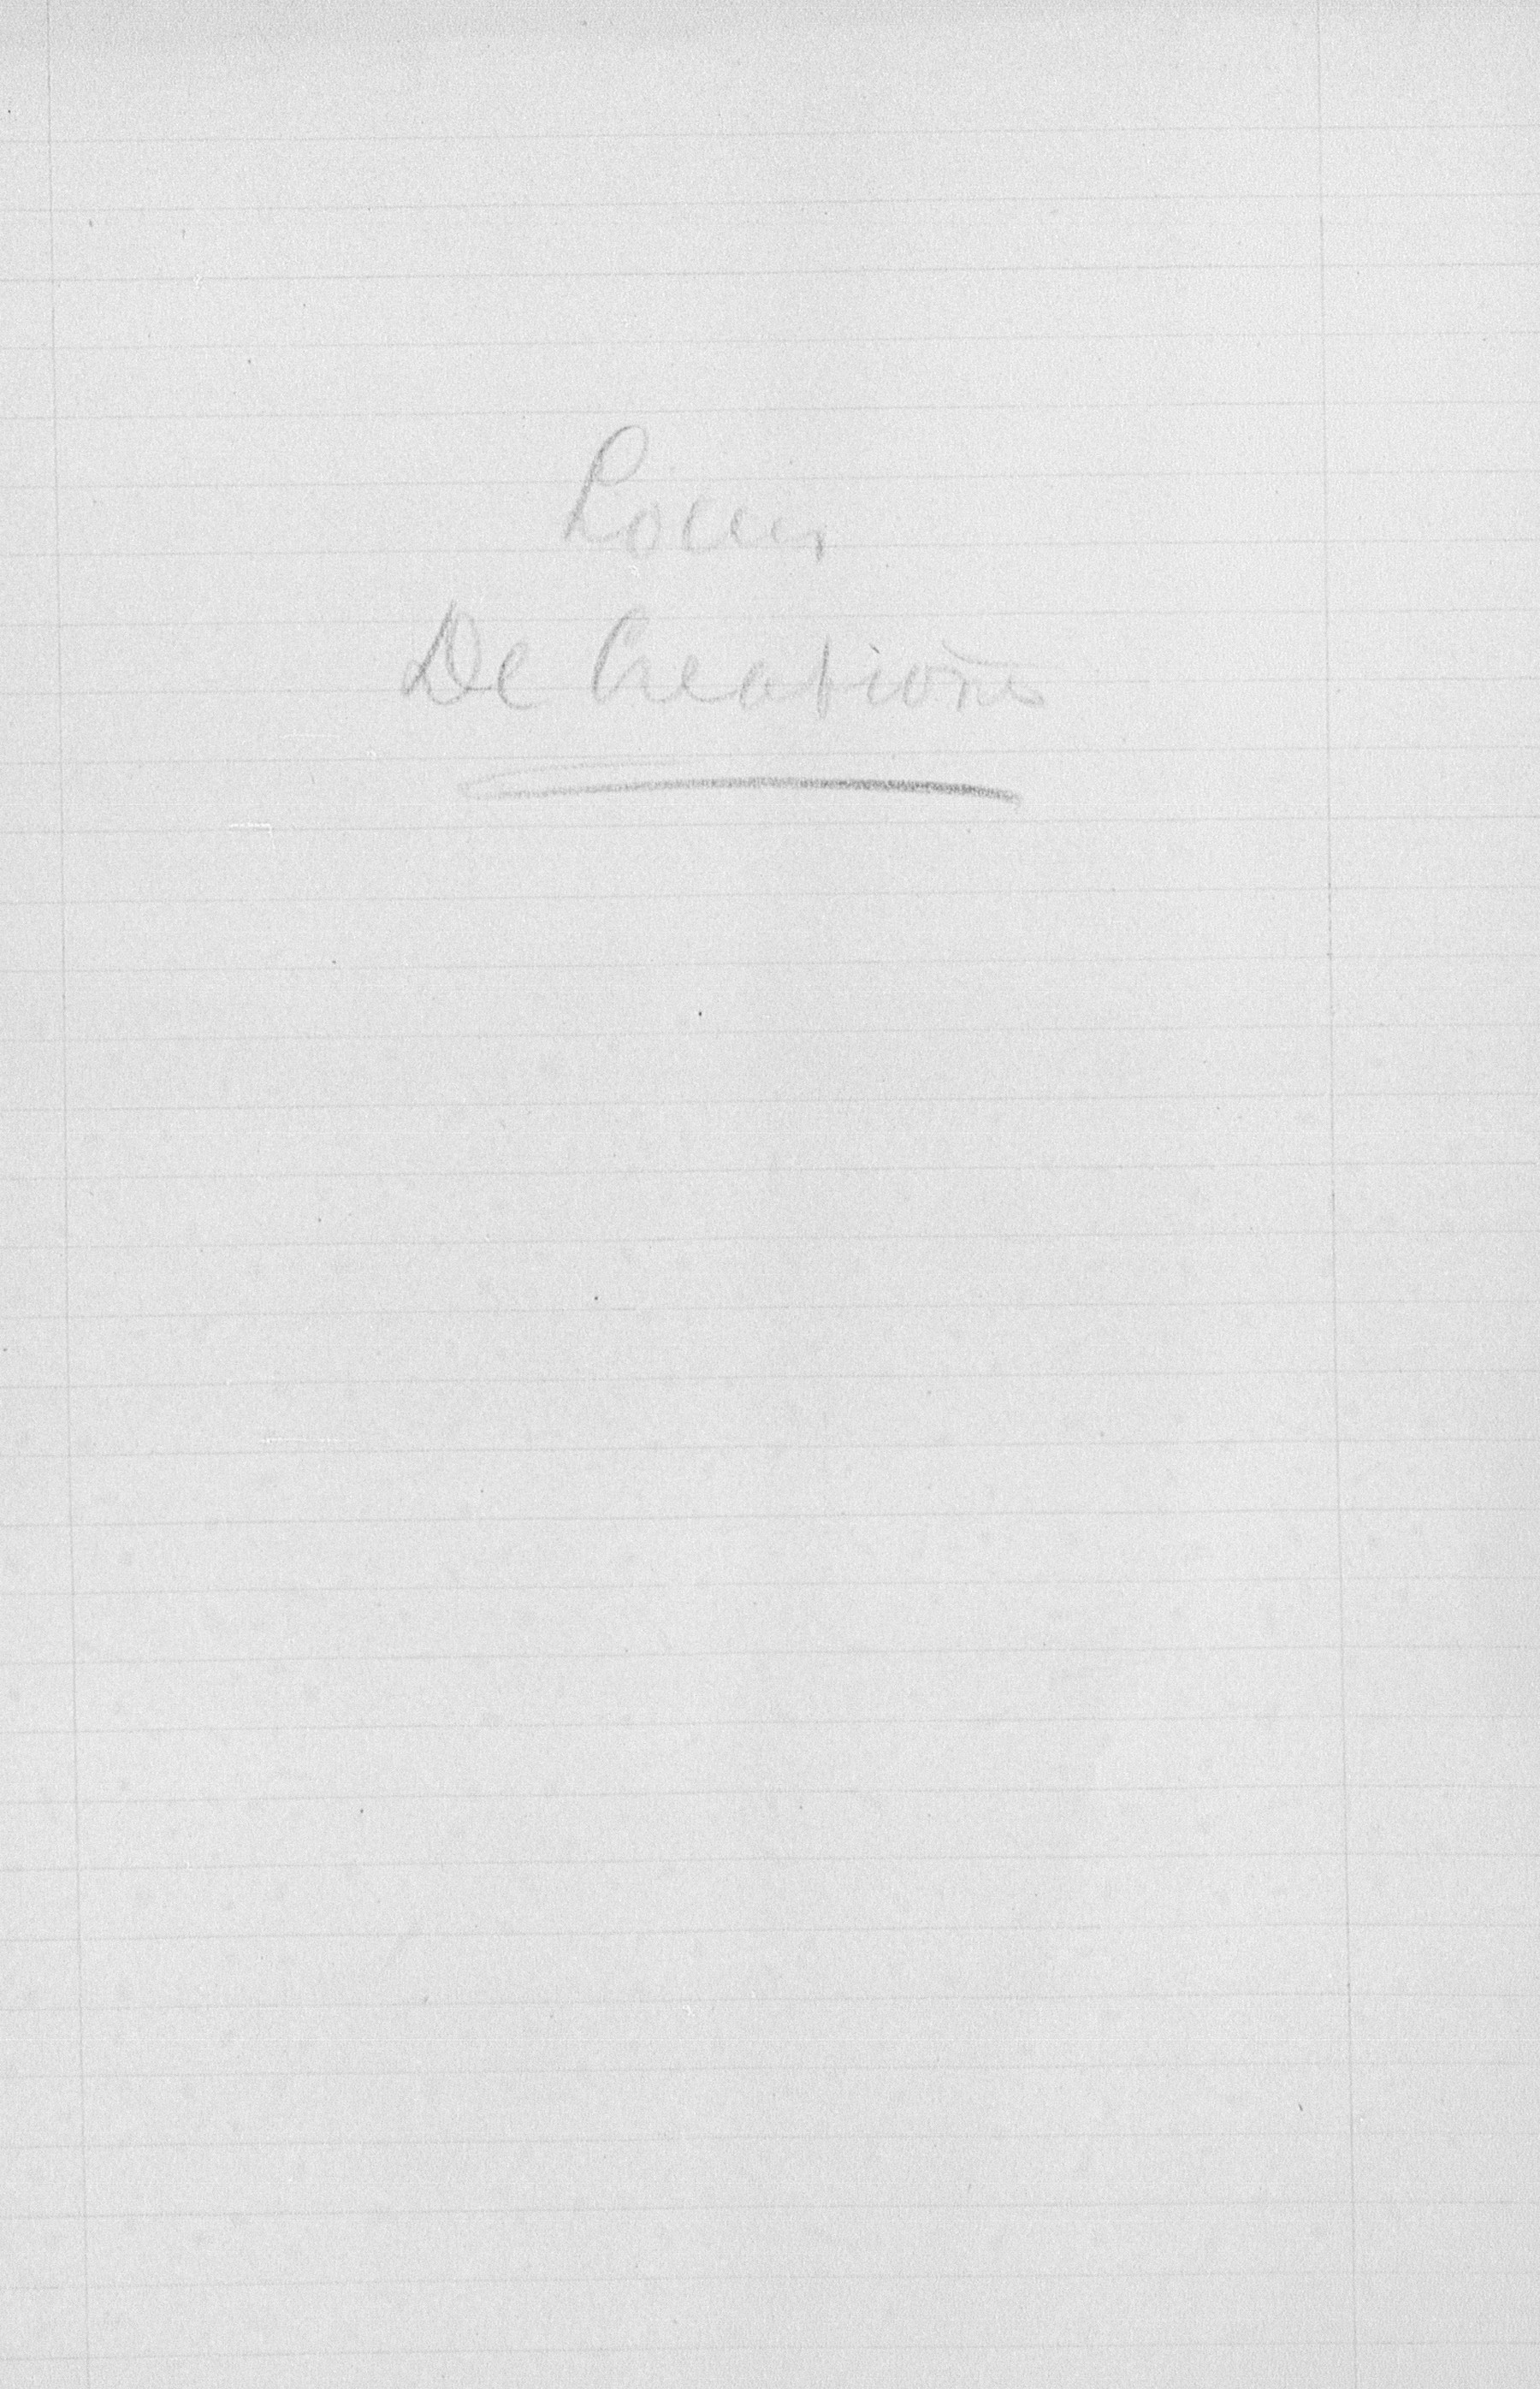 Locus
De Creatione